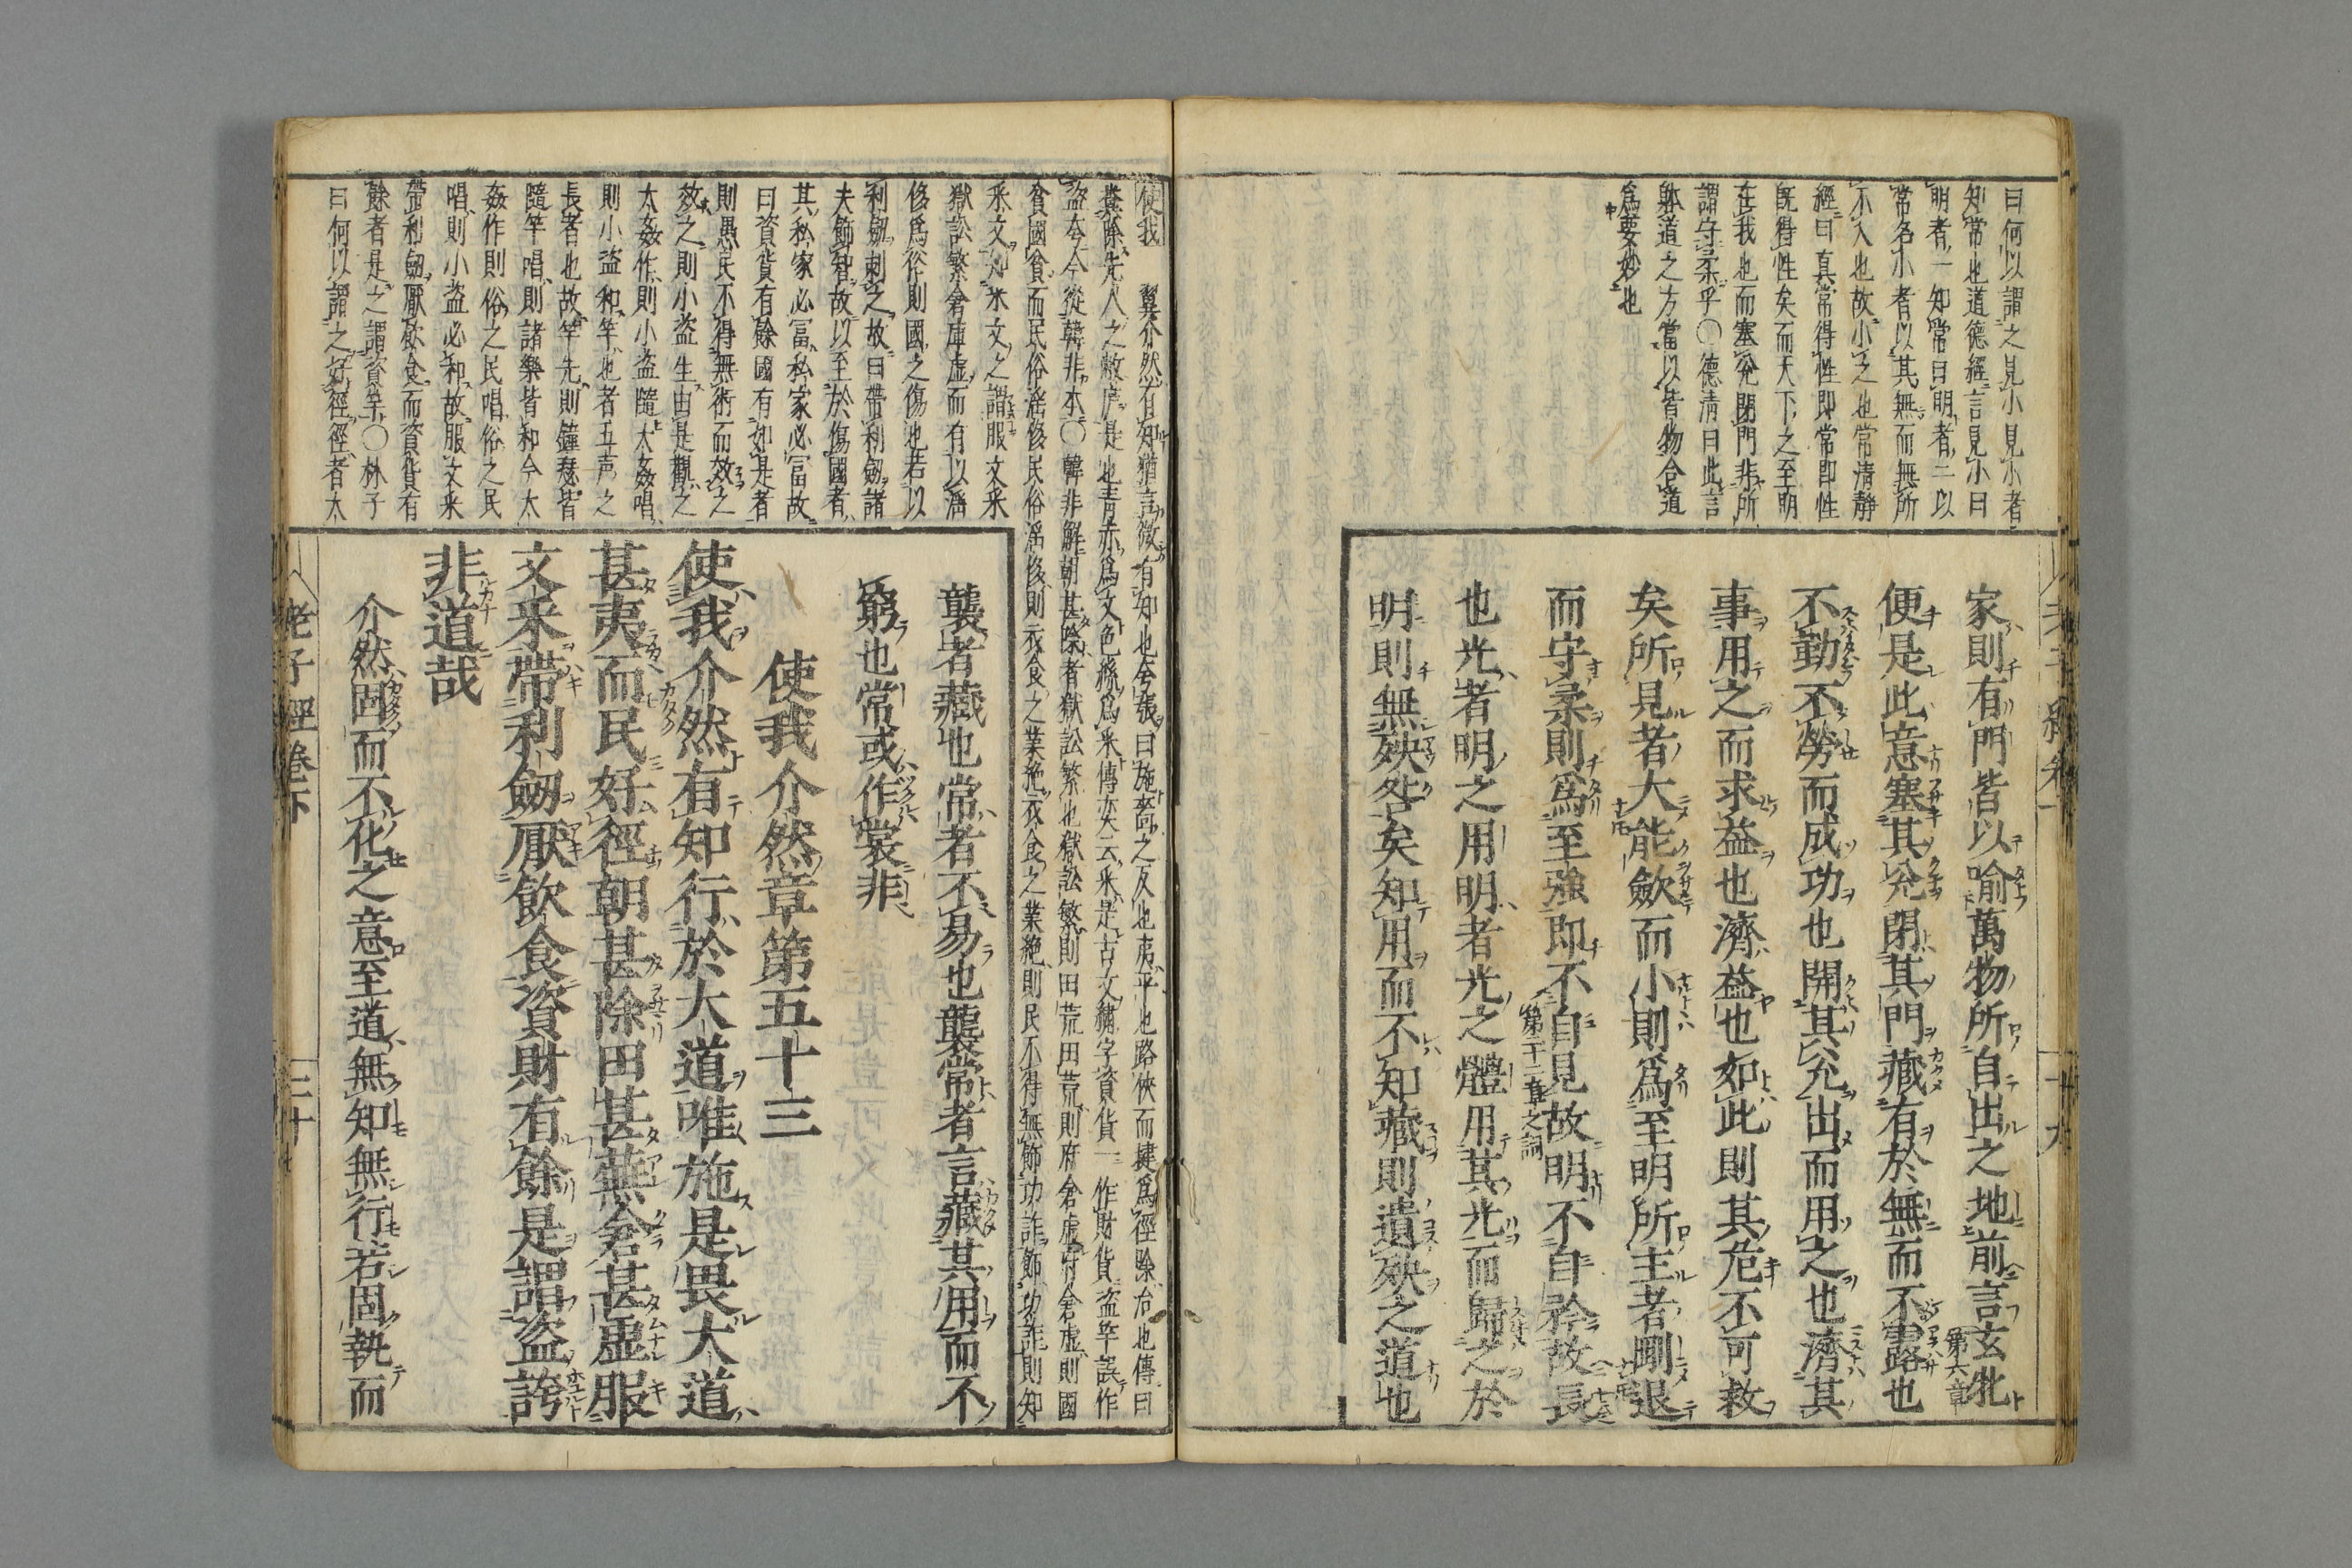 曰何以謂之見小見小者
知常也道德經言見小曰
明者一知常曰明者二以
常名小者以其無而無所
不入也故小之也常清靜
經曰真常得性即常即性
既得性矣而天下之至明
在我也而塞兌閉門非所
謂守柔乎〇德清曰此言
躰道之方當以背物合道
爲要妙也
家則有門皆以喻萬物所自出之地前言玄牝
第六章
便是此意塞其兌閉其門藏有於無而不露也
不勤不勞而成功也開其兌出而用之也濟其
事用之而求益也濟益也如此則其危不可救
矣所見者大能歛而小則爲至明所主者剛退
而守柔則爲至強即不自見故明不自矜故長
第二十二章之詞
也光者明之用明者光之體用其光而歸之於
明則無殃咎矣知用而不知藏則遺殃之道也
使我 翼介然有知猶言微有知也今
糞除先人之敝庐是也青赤爲文色絲爲采傅奕云采是古文繡字資貨一作財貨盜竽誤作
盜夸今從韓非本〇韓非解朝甚除者獄訟繁也獄訟繁則田荒田荒則府倉虛府倉虛則國
貧國貧而民俗滛侈民俗滛侈則衣食之業絶衣食之業絶則民不得無飾巧詐飾巧詐則知
采文知采文之謂服文采
獄訟繁倉庫虛而有以滛
侈爲俗則國之傷也若以
利劒刺之故曰帶利劒諸
夫飾智故以至於傷國者
其私家必富私家必富故
曰資貨有餘國有如是者
則愚民不得無術而效之
效之則小盜生由是觀之
太姦作則小盜隨太姦唱
則小盜和竽也者五声之
長者也故竽先則鐘瑟皆
隨竽唱則諸樂皆和今太
姦作則俗之民唱俗之民
唱則小盜必和故服文采
帶利劒厭飲食而資貨有
餘者是之謂資竽〇林子
曰何以謂之好徑徑者大
襲者藏也常者不易也襲常者言藏其用而不
窮也常或作裳非
使我介然章第五十三
使我介然有知行於大道唯施是畏大道
甚夷而民好徑朝甚除田甚蕪倉甚虛服
文采帶利劒厭飲食資財有餘是謂盜誇
非道哉
介然固而不化之意至道無知無行若固執而
老子經卷下
三十